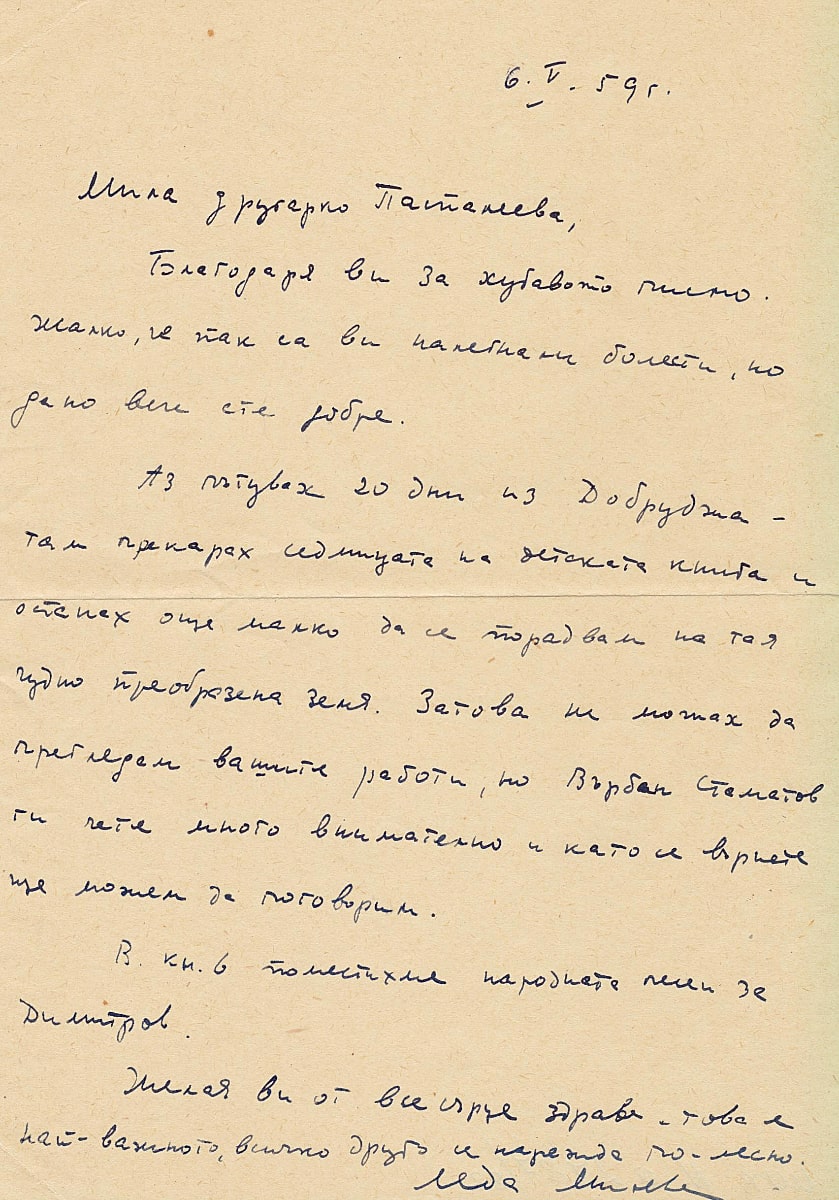 6.V.59г.
Мила другарко Пастанеева,
Благодаря ви за хубавото писмо.
Жалко, че пак са ви налетнали болести, но
дано вече сте добре.
Аз пътувах 20 дни из Добруджа -
там прекарах седмицата на детската книга и
останах още малко да се порадвам на тая
чудно преобразена земя. Затова не можах да
прегледам вашите работи, но Върбан Стаматов
ги чете много внимателно и като се върнете
ще можем да поговорим.
В кн. 6 поместихме народната песен за
Димитров.
Желая ви от все сърце здраве - това е
най-важното, всичко друго се нарежда по-лесно.
Леда Милева